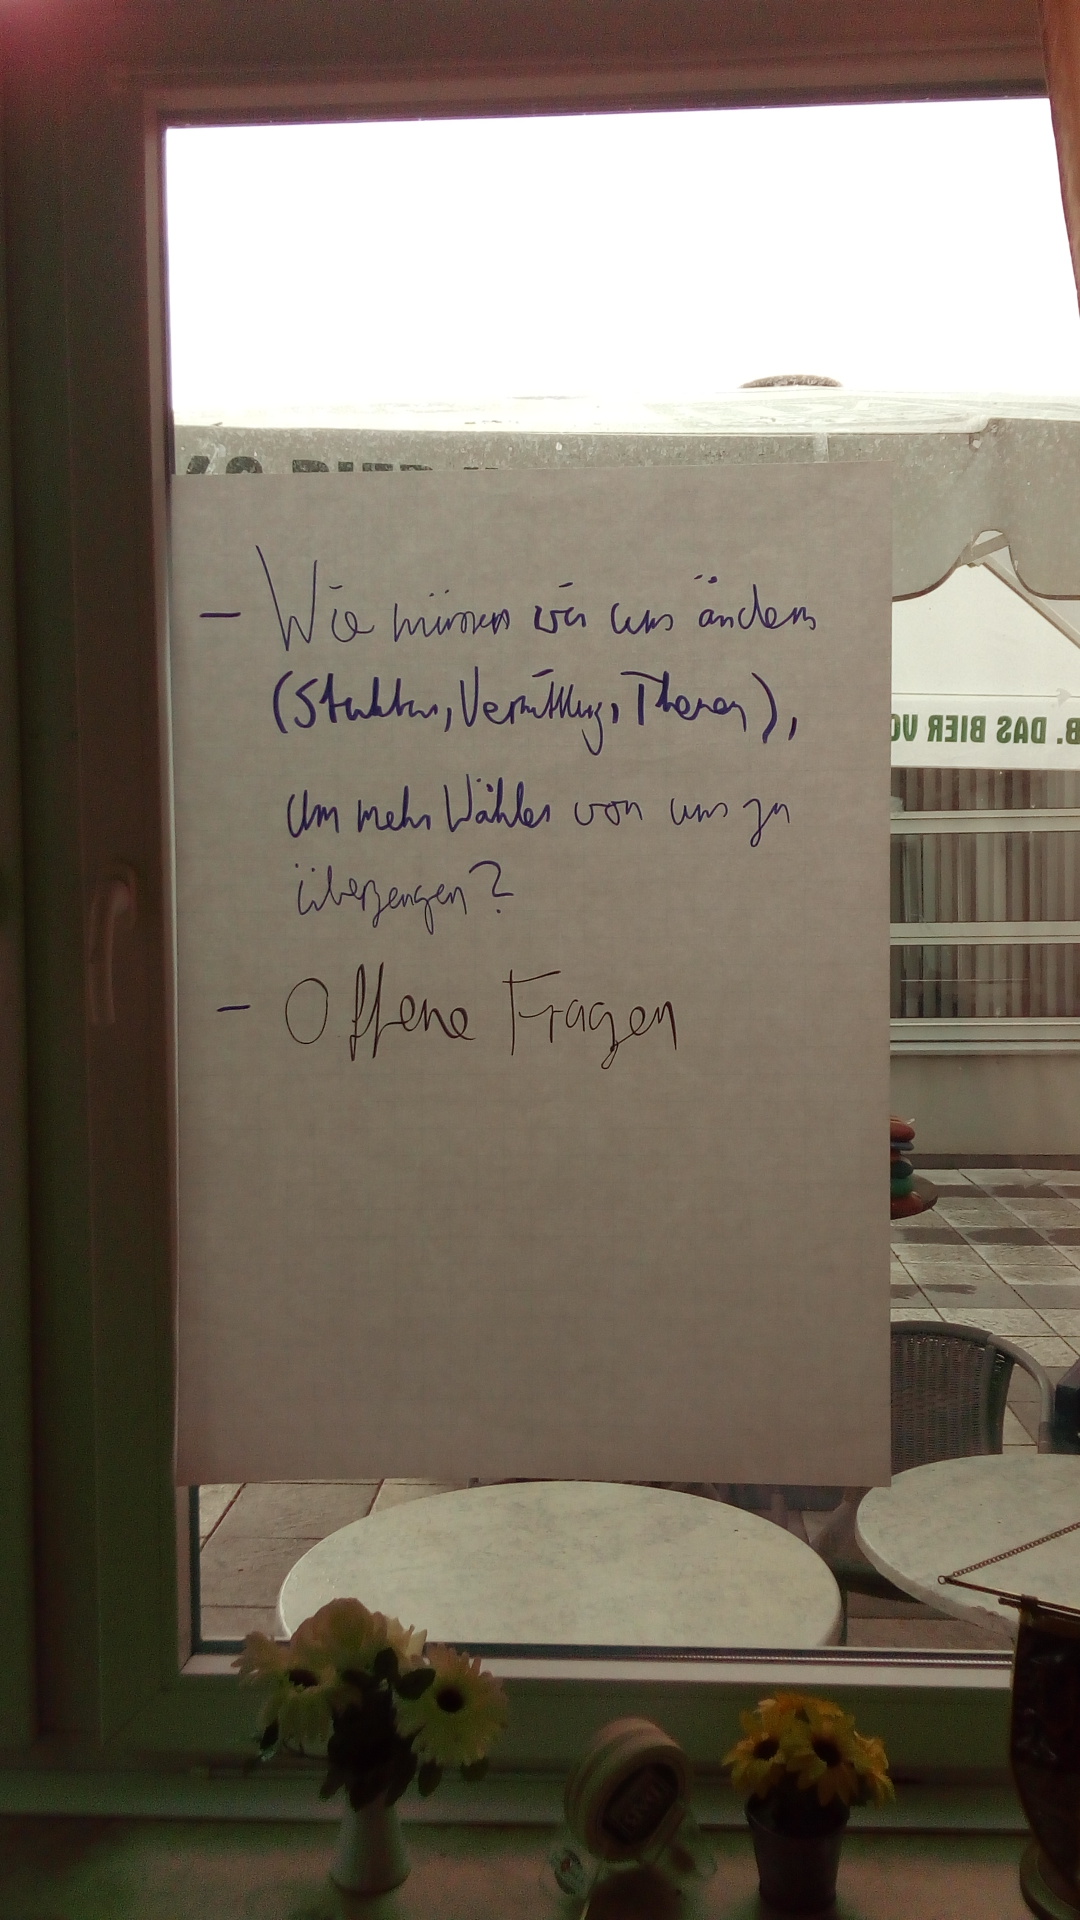 - Wie müssen wir uns ändern
(Struktur, Vermittlung, Themen),
um mehr Wähler von uns zu
überzeugen?
- Offene Fragen
B. DAS BIER VO